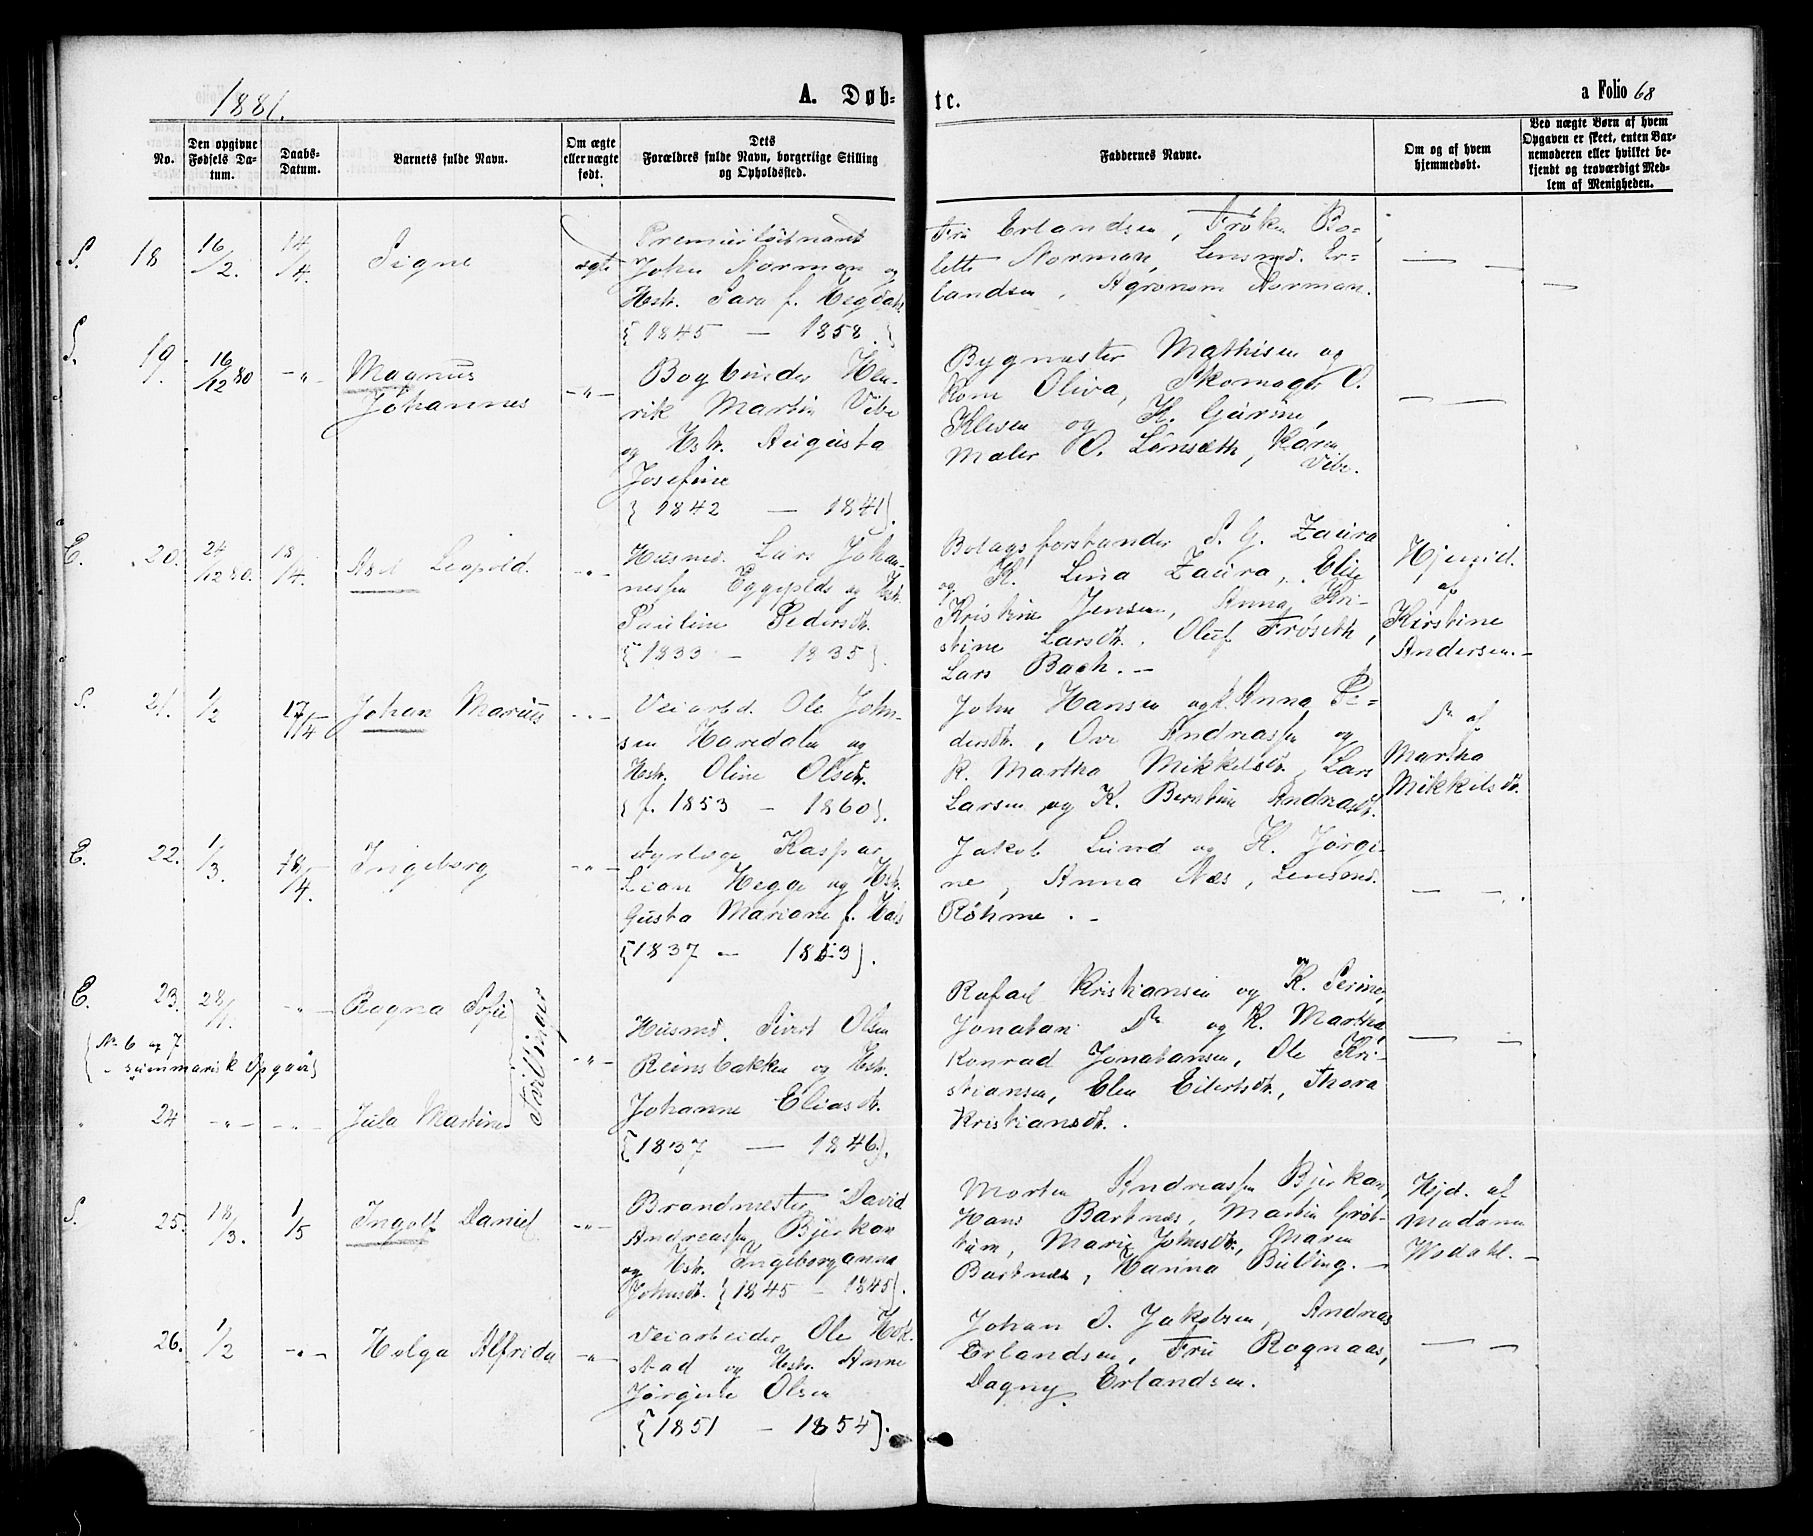 1881.
A. Døb-
te.
a Folio 68
No.
Den opgivne
Fødsels Da-
tum.
Daabs-
Datum.
Barnets fulde Navn.
Om ægte
eller uægte
født.
Dets
Forældres fulde Navn, borgerlige Stilling
og Opholdssted.
Faddernes Navne.
Om og af hvem
hjemmedøbt.
Ved uægte Børn af hvem
Opgaven er skeet, enten Bar-
nemoderen eller hvilket be-
kjendt og troværdigt Med-
lem af Menigheden.
S. 18 16/2. 14/4. Signe ægte
Premierløitnant
John Norman og
Hstr. Sara f. Hegdahl
{1845 — 1858.}
Fru Erlandsen, Frøken Bo-
lette Norman, Lensmd. Er-
landsen, Agronom Norman.
S. 19. 16/12 80 -"- Magnus
Johannes -"-
Bogbinder Hen-
rik Martin Vibe
og Hstr. Augusta
Josefine
{1842 — 1841}.
Bygmester Mathisen og
Kone Oliva, Skomager O.
Klesen og K. Gurine,
Maler O. Lumsæth, Karen
Vibe.
E. 20. 24/12 80. 18/4. Axel Leopold. -"-
Husmd. Lars Johan-
nessen Eggeplds og Hstr.
Pauline Pedersdtr.
{1833 — 1835}.
Bolagsforstander S. G. Zaura
og K. Lina Zaura, Elise
Kristine Jensen, Anna Kri-
stine Larsdtr. Oluf Frøseth,
Lars Bach. —
Hjemd.
af
Kirstine
Andersen. —
S. 21. 1/2 17/4 Johan Marius -"-
Veiarbd. Ole John-
sen Haredalen og
Hstr. Oline Olsdtr.
{f. 1853 — 1860}.
John Hansen og K. Anna Pe-
dersdtr., Ove Andreassen og
K. Martha Mikkelsdtr. Lars
Larsen og K. Berntine Andreasdtr.
Do af
Martha
Mikkelsdtr.
E. 22. 1/3. 18/4. Ingeborg -"-
Dyrlæge Kaspar
Lian Hegge og Hstr.
Gusta Mariane f. Hals
{1837 — 1853}.
Jakob Lund og K. Jørgi-
ne, Anna Næs, Lensmd.
Røhme. —
E. 23. 28/1. -"- Ragna Sofie
Tvillinger
{No 6 og 7
- summarisk Opgave}
Husmd. Sivert Olsen
Reinsbakken og Hstr.
Johanne Eliasdtr.
{1837 — 1846}.
-"-
Rafael Kristiansen og K. Serine,
Jonatan Do og K. Martha,
Konrad Jonatansen, Ole Kri-
stiansen, Elen Eilertsdtr., Thora
Kristiansdtr.
" 24 -"- -"- Jula Martine
S. 25. 18/3. 1/5 Ingolf Daniel -"-
Brandmester David
Andreassen Bjerkan
og Hstr. Ingeborganna
Johnsdtr. {1845 — 1845}.
Morten Andreassen Bjerkan,
Hans Bartnæs, Martin Grøt-
tum, Marie Johnsdtr., Maren
Bartnæs, Hanna Bülling. —
Hjd. af
Madame
Wodahl. —
" 26. 1/2 -"- Helga Alfrida -"-
Veiarbeider Ole Hok-
stad og Hstr. Anne
Jørgine Olsen
{1851 — 1854}.
Johan O. Jakobsen, Andreas
Erlandsen, Fru Rognaas,
Dagny Erlandsen.